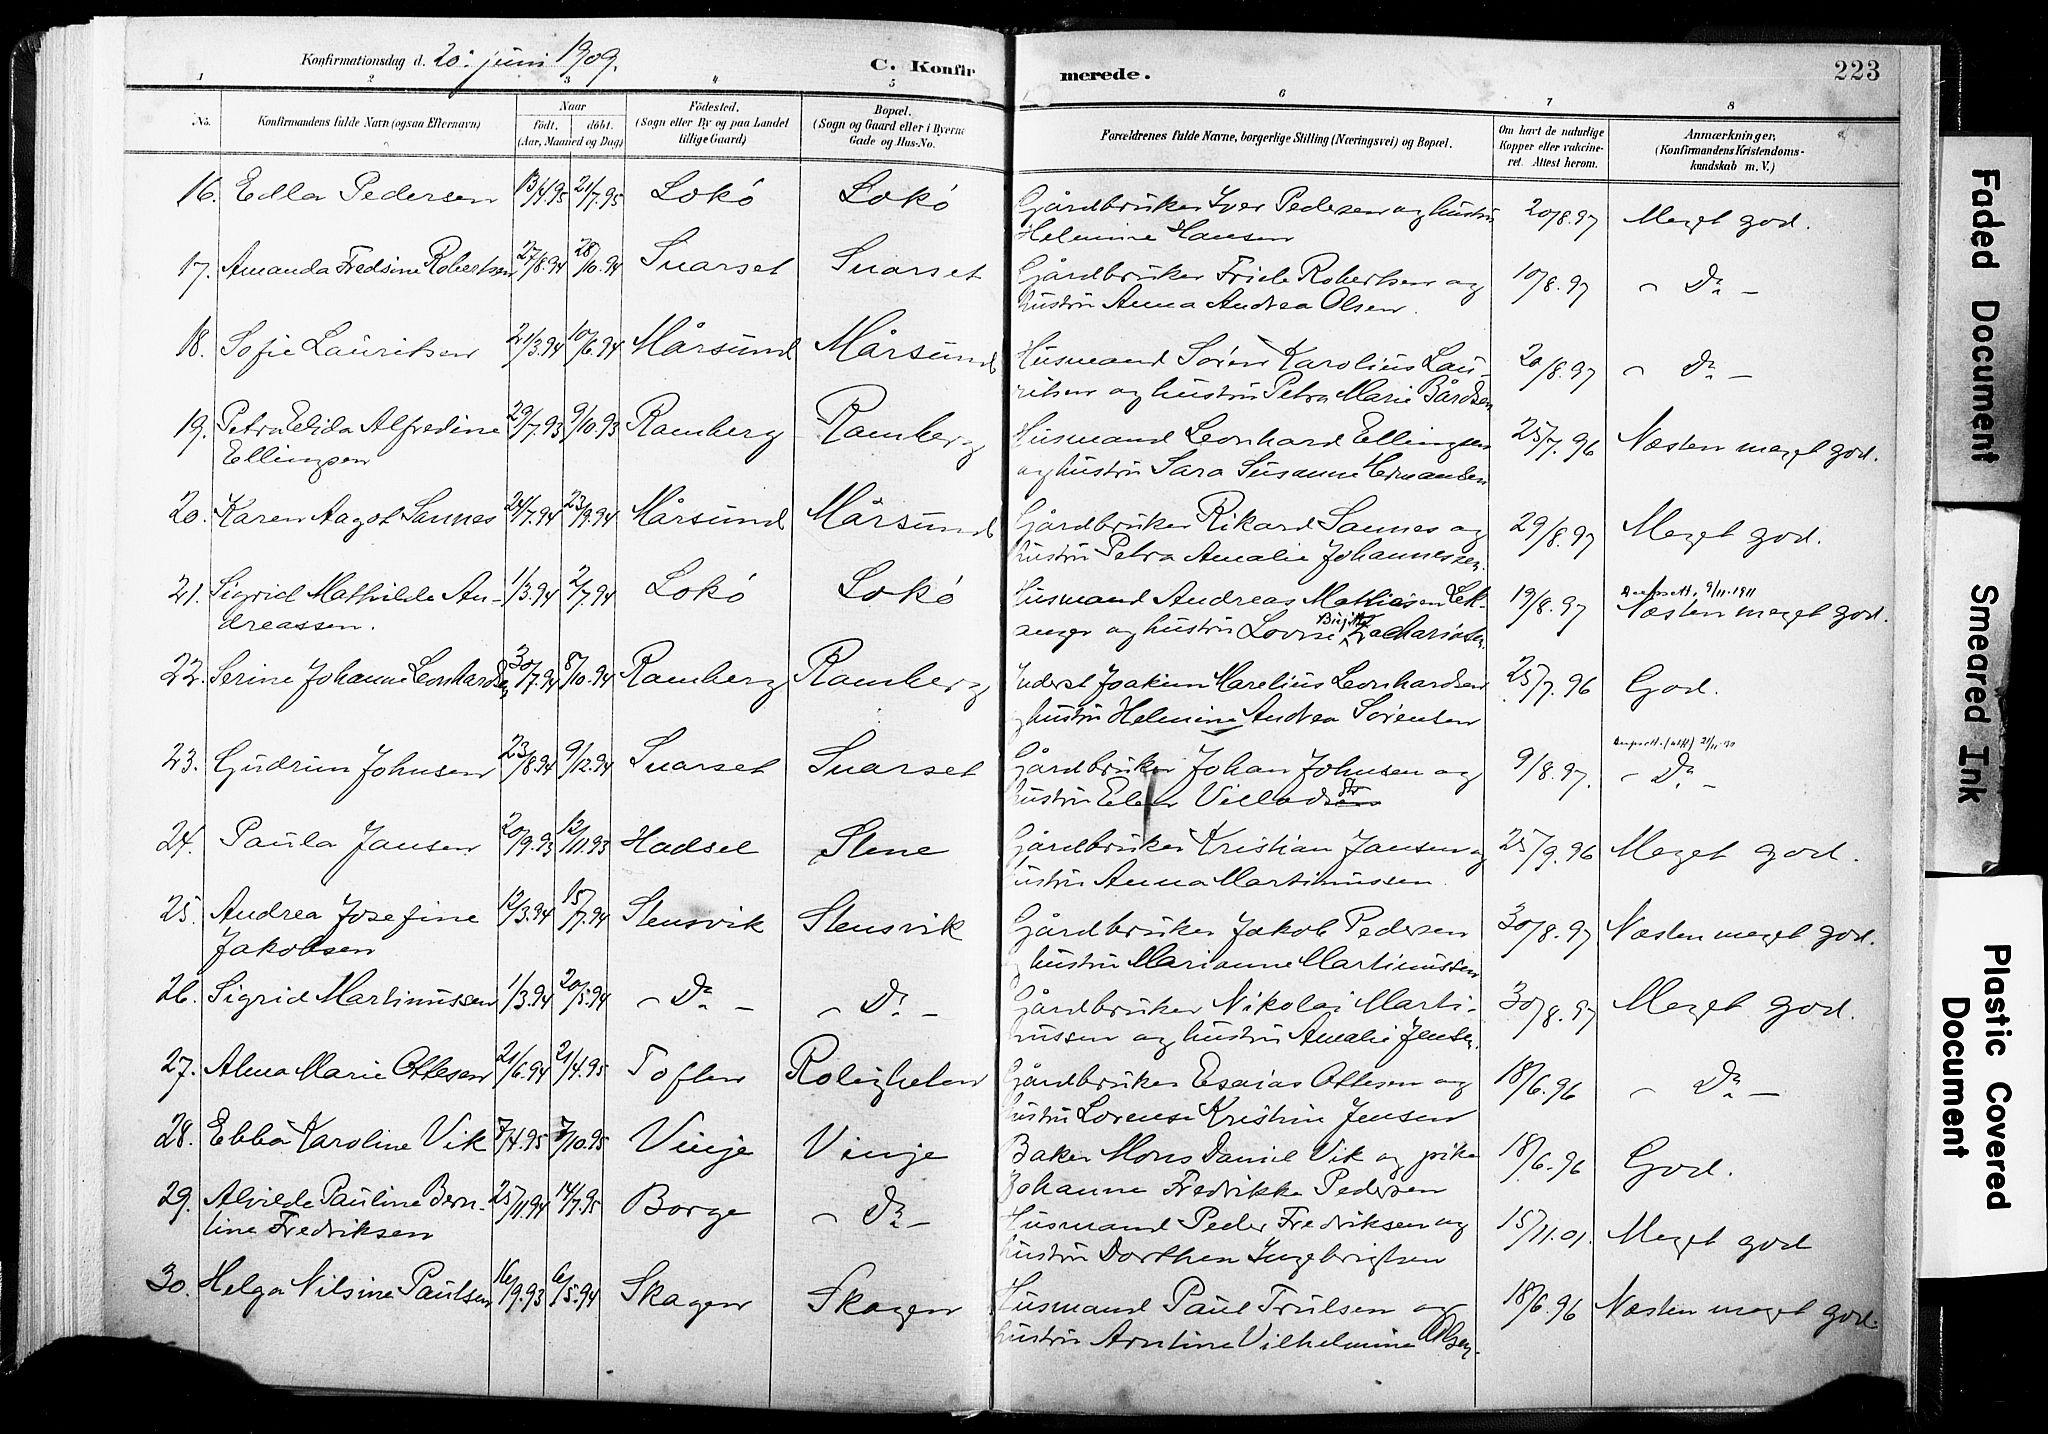 Konfirmationsdag d. 20. juni 1909.
C. Konfirmerede.
223
1 2 3 4 5 6 7 8
No.
Konfirmandens fulde Navn (ogsaa Efternavn)
Naar
födt. döbt.
(Aar, Maaned og Dag)
Födested.
(Sogn eller By og paa Landet
tillige Gaard)
Bopæl.
(Sogn og Gaard eller i Byerne
Gade og Hus-No.
Forældrenes fulde Navne, borgerlige Stilling (Næringsvei) og Bopæl.
Om havt de naturlige
Kopper eller vakcine-
ret. Attest herom.
Anmærkninger.
(Konfirmandens Kristendoms-
kundskab m. V.)
16. Edla Pedersen 13/4.95 21/7.95 Lokö Lokö Gårdbruker Iver Pedersen og hustru 20/8.97 Meget god.
Helmine Hansen
17. Amanda Fredsine Robertsen 27/8.94 28/10.94 Suarset Suarset Gårdbruker Fride Robertsen og 10/8.97 - Do -
hustru Anna Andrea Olsen.
18. Sofie Lauritsen 21/3.94 10/6.94 Mårsund Mårsund Husmand Sören Karolius Lau- 20/8.97 - Do -
ritsen og hustru Petra Marie Bårdsen
19. Petra Elida Alfredine 29/7.93 9/10.93 Ramberg Ramberg Husmand Leonhard Ellingsen 25/7.96 Næsten meget god.
Ellingsen og hustru Sara Susanne Hermansen
20. Karen Aagot Sannes 24/7.94 23/9.94 Mårsund Mårsund Gårdbruker Rikard Sannes og 29/8.97 Meget god.
hustru Petra Amalie Johannessen.
21. Sigrid Mathilde An- 1/3.94 2/7.94 Lokö Lokö Husmand Andreas Mathisen Lek- 19/8.97 9/11-1911 Næsten meget god.
dreassen. anger og hustru Lovise Birgitte Zachariassen.
22. Serine Johanne Leonhardsen 30/7.94 8/10.94 Ramberg Ramberg Inderst Joakim Marelius Leonhardsen 25/7.96 God.
og hustru Helmine Andrea Sörensen
23. Gudrun Johnsen 23/8.94 9/12.94 Suarset Suarset Gårdbruker Johan Johnsen og 9/8.97. - Do -
hustru Elen Villads
24. Paula Jansen 20/9.93 12/11.93 Hadsel Stene Gårdbruker Kristian Jansen og 25/9.96 Meget god.
hustru Anna Martinussen.
25. Andrea Josefine 12/3.94 15/7.94 Stensvik Stensvik Gårdbruker Jakob Pedersen 30/8.97 Næsten meget god.
Jakobsen og hustru Marianne Martinussen
26. Sigrid Martinussen 1/3.94 20/5.94 - Do - - Do - Gårdbruker Nikolai Marti- 30/8.97 Meget god.
nussen og hustru Amalie Jensen.
27. Alma Marie Ottesen 21/6.94 21/4.95 Toften Roligheten Gårdbruker Esaias Ottesen og 18/6.96 - Do -
hustru Lorense Kristine Jensen
28. Ebba Karoline Vik 7/4.95 7/10.95 Vinje Vinje Baker Mons Daniel Vik og pike 18/6.96 God.
Johanne Fredrikke Pedersen
29. Alvilde Pauline Bern- 25/11.94 14/7.95 Borge - Do - Husmand Peder Fredriksen og 15/11.01. Meget god
tine Fredriksen hustru Dorthea Ingebrigtsen
30. Helga Nilsine Paulsen 16/9.93 6/5.94 Skagen Skagen Husmand Paul Trulsen og 18/6.96 Næsten meget god.
hustru Arntine Vilhelmine Olsen.
Faded Document
Smeared Ink
Plastic Covered
Document